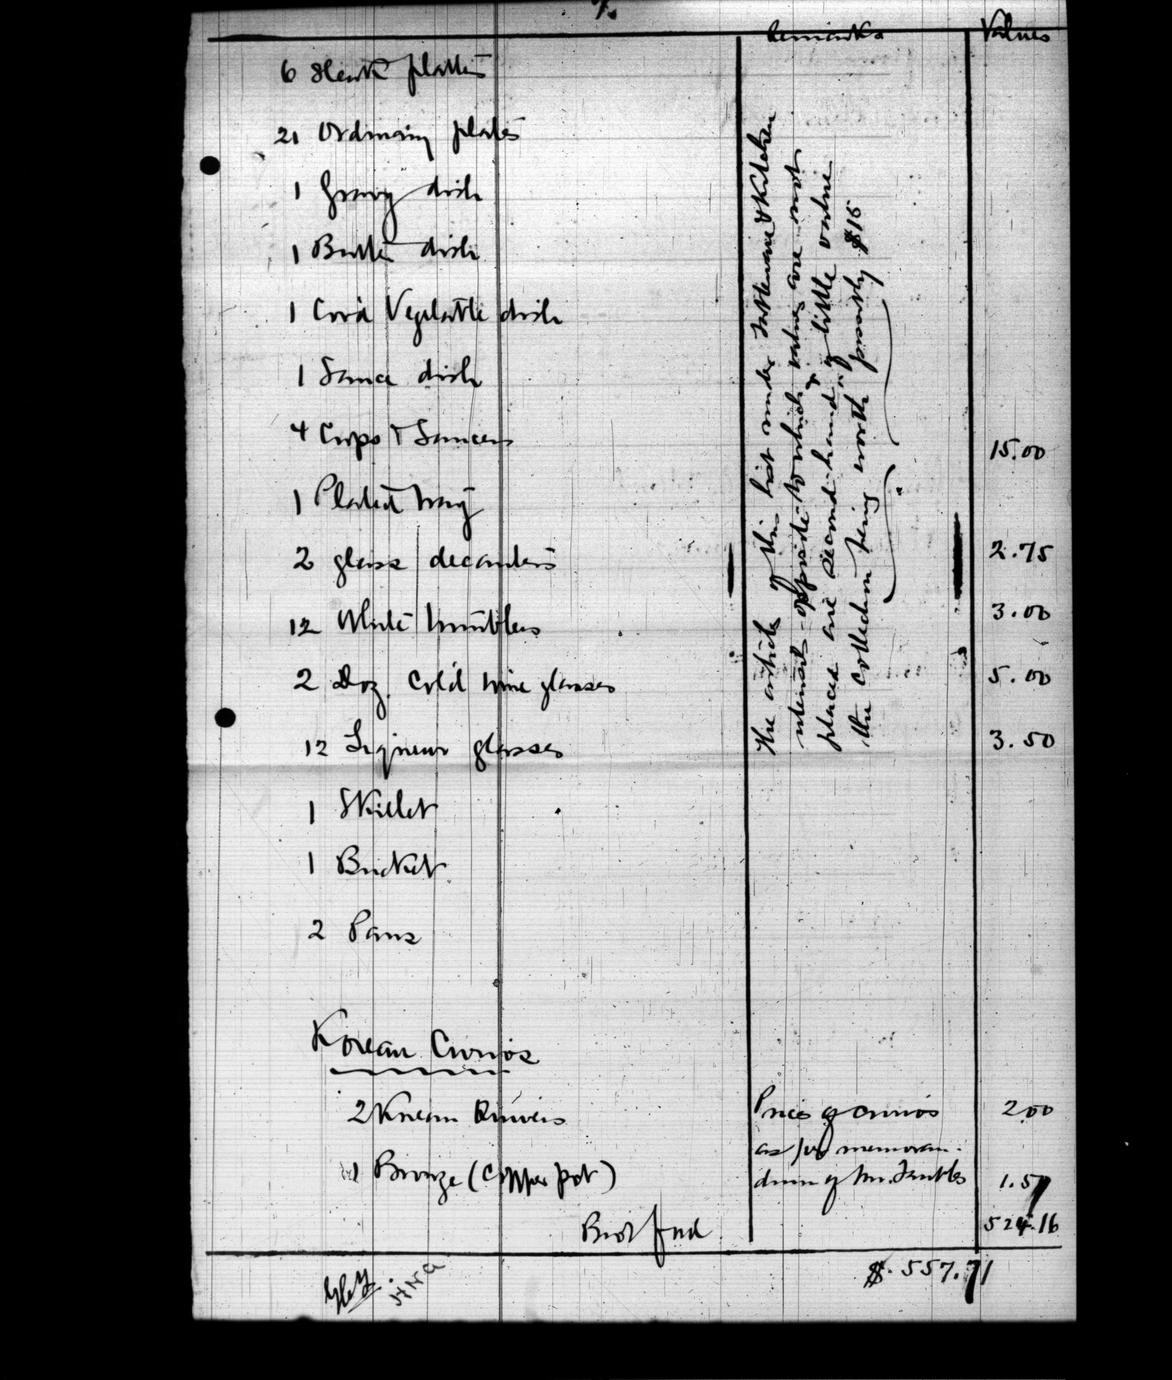 7.
Remarks Values
6 plates
21 Ordinary plates
1 Gravy dish
1 Butter dish
1 Cov'd Vegetable dish
1 Sauce dish
4 Cups & Saucers 15.00
1 Plated tray
2 glass decanters 2.75
12 White tumblers 3.00
2 Doz. Col'd wine glasses 5.00
12 Liqueur glasses 3.50
1 Skillet
1 Bucket
2 Pans
The articles of this list under Tableware & Kitchen
utensils opposite to which values are not
placed are second-hand & of little value
the collection being worth possibly $15
Korean Curios
2 Korean 2.00
Prices of curios
as per memoran-
1 Bronze (Copper pot) dum of Mr. 1.5
Brot fwd 524.16
$557.71